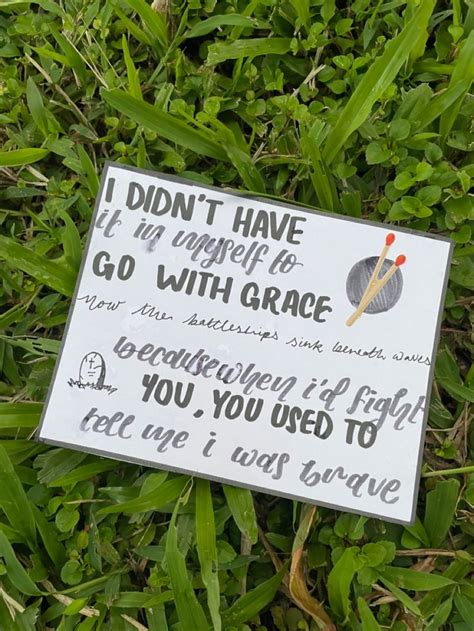 I DIDN'T HAVE
it in myself to
GO WITH GRACE
now the battleships sink beneath waves
because when i'd fight
YOU, YOU USED TO
tell me i was brave